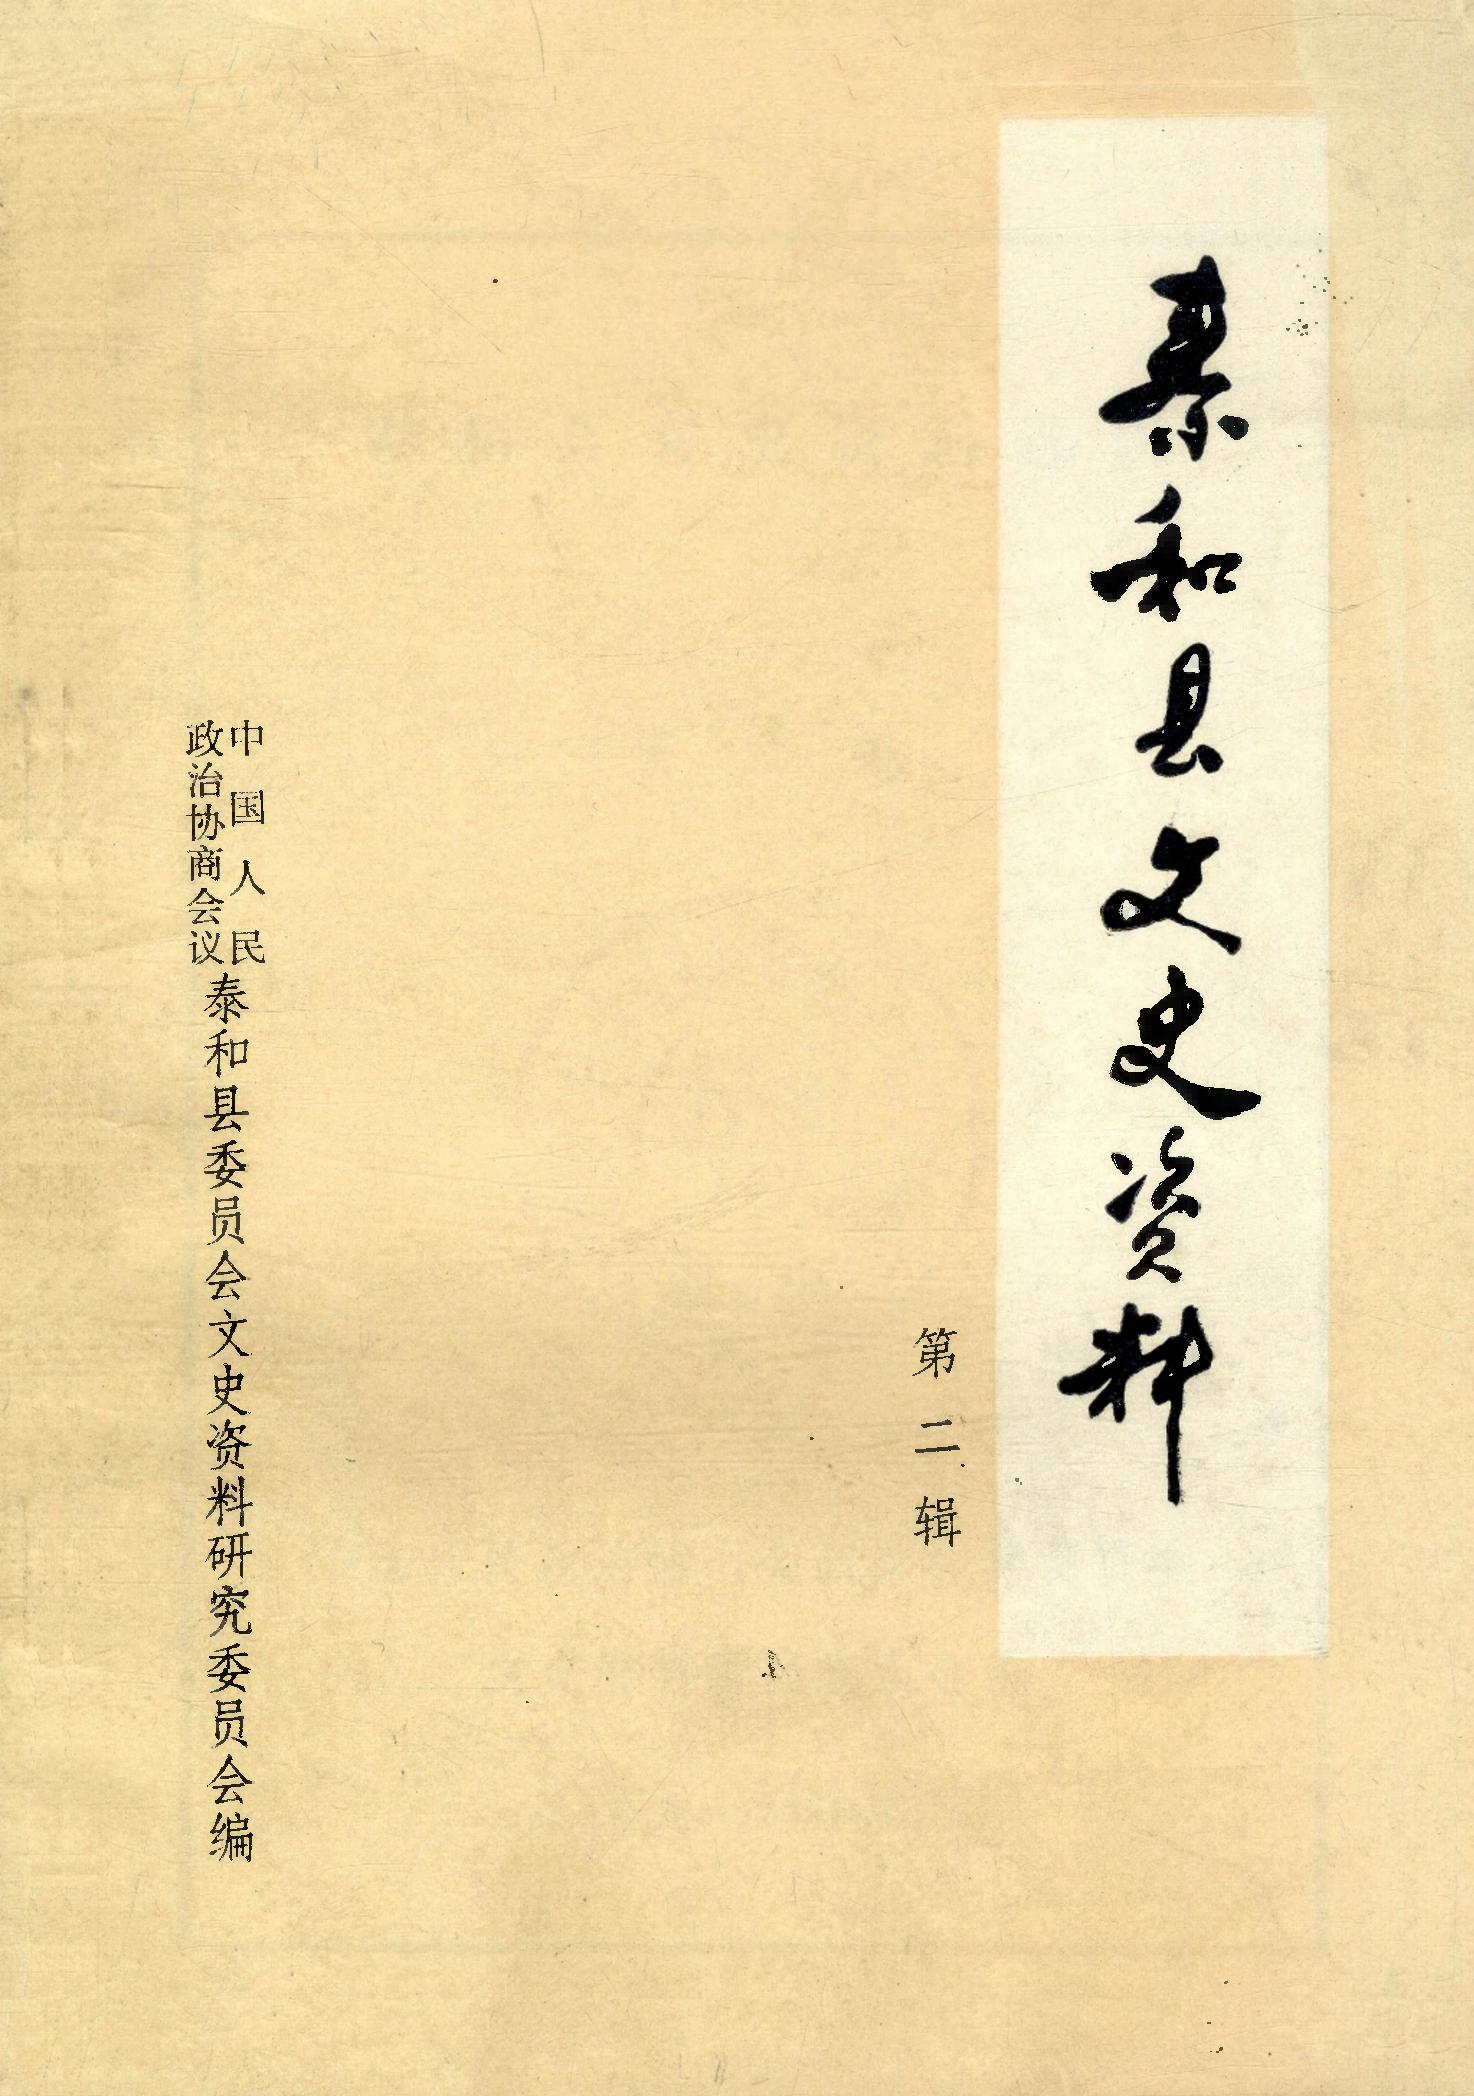 泰和县文史资料
第二辑
中国人民
政治协商会议
泰和县委员会文史资料研究委员会编